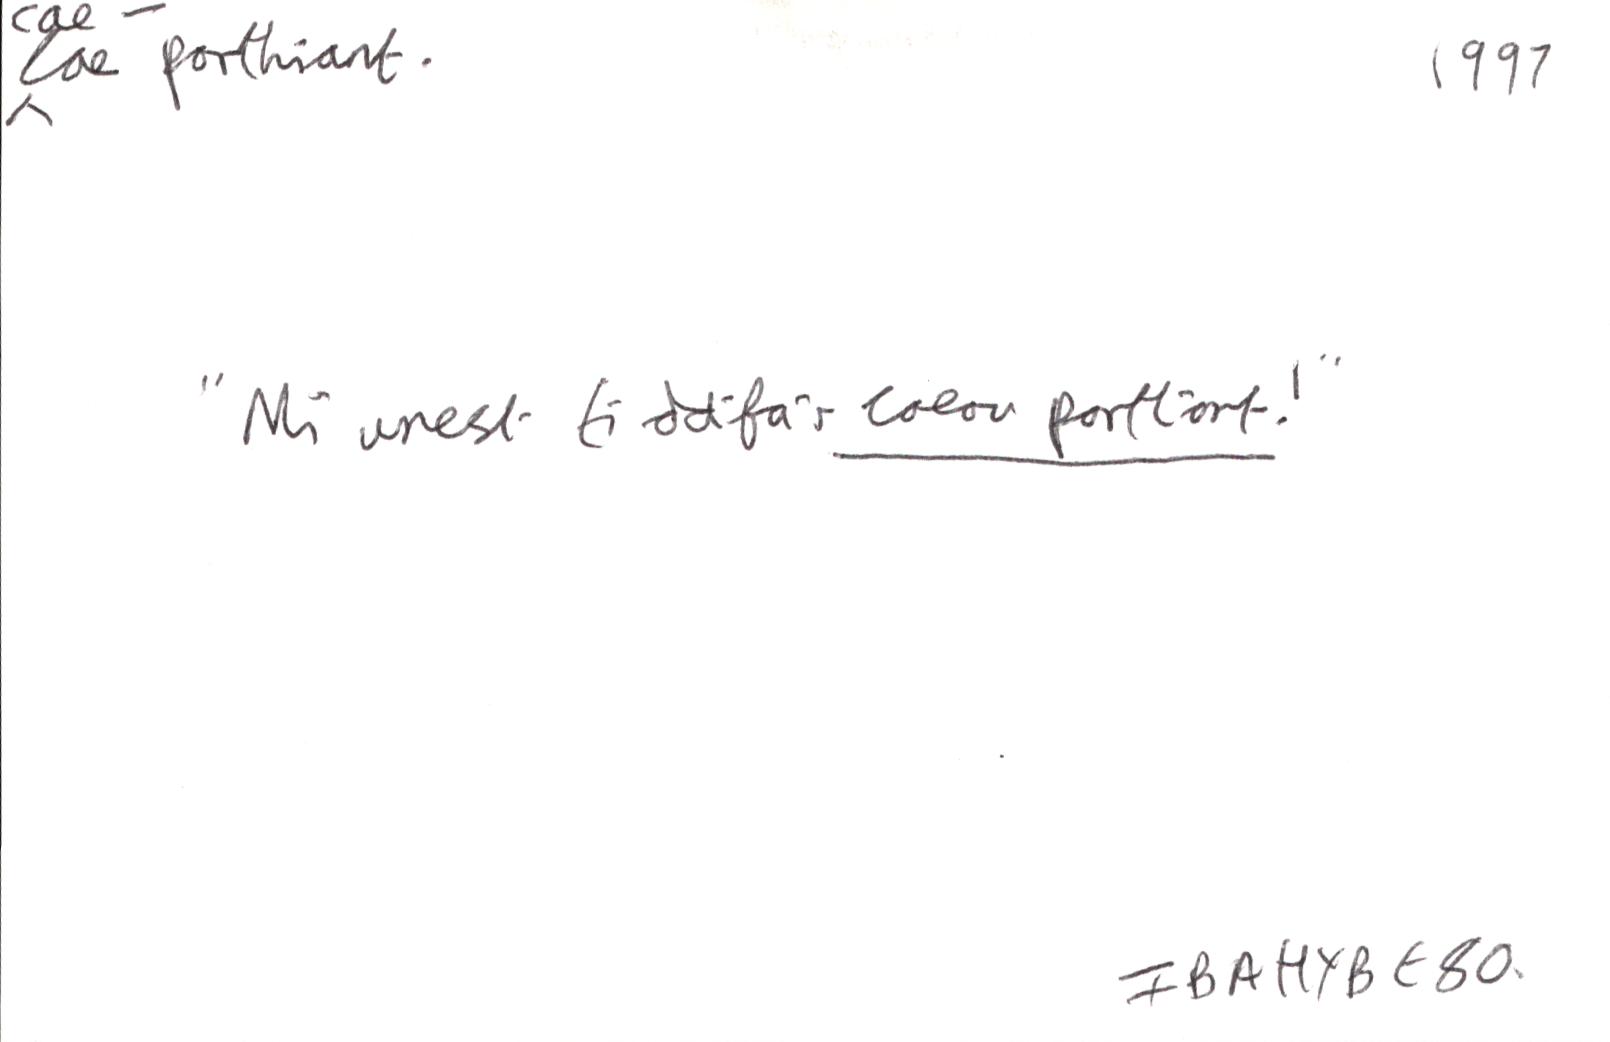 cae –
Cae porthiant.
1997
"Mi wnest ti ddifa'r caeau porthiant!"
IBAHYBE80.